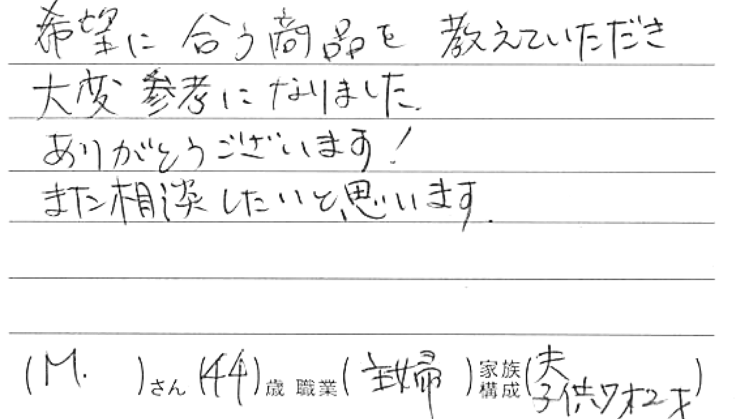 希望に合う商品を教えていただき
大変参考になりました.
ありがとうございます!
また相談したいと思います.
(M. )さん(44)歳 職業(主婦)家族構成(夫
子供7才2才)